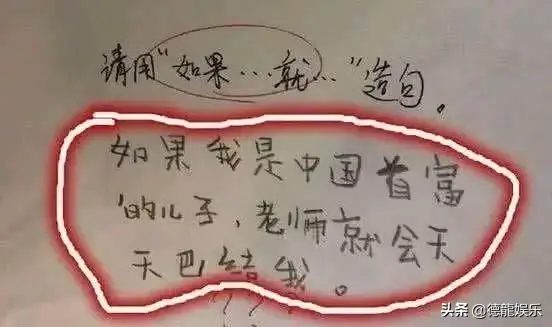 请用"如果…就…"造句。
如果我是中国首富
的儿子,老师就会天
天巴结我。
头条 @德龍娱乐